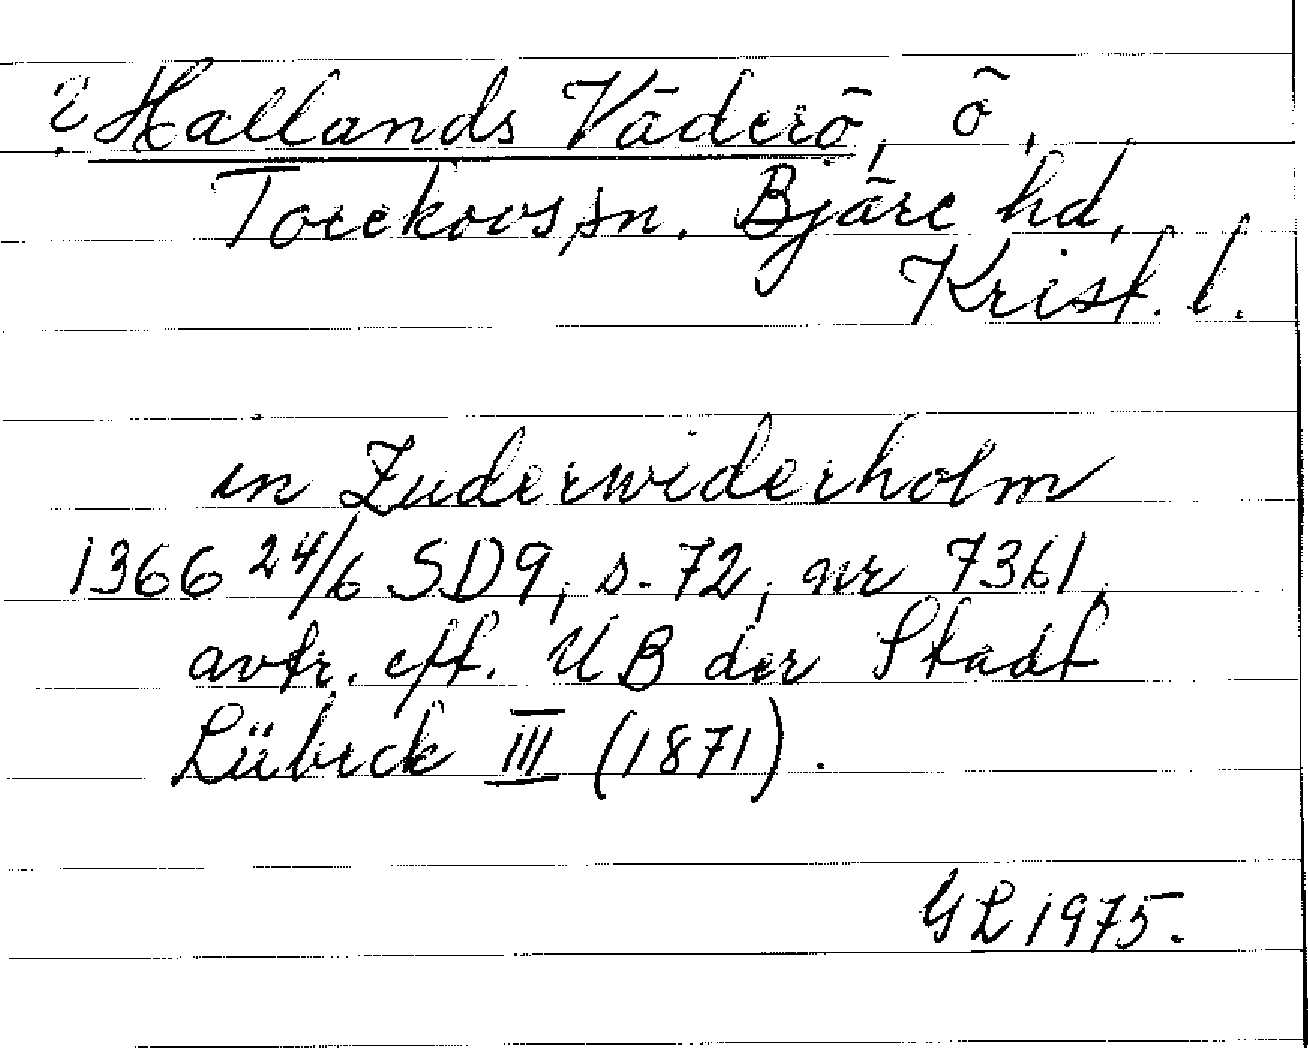 ? Hallands Väderö, ö,
Torekovs sn. Bjäre hd,
Krist. l.
in Zuderwiderholm
1366 24/6 SD9, s. 72, nr 7361,
avtr. eft. UB der Stadt
Lübeck III (1871).
GL 1975.